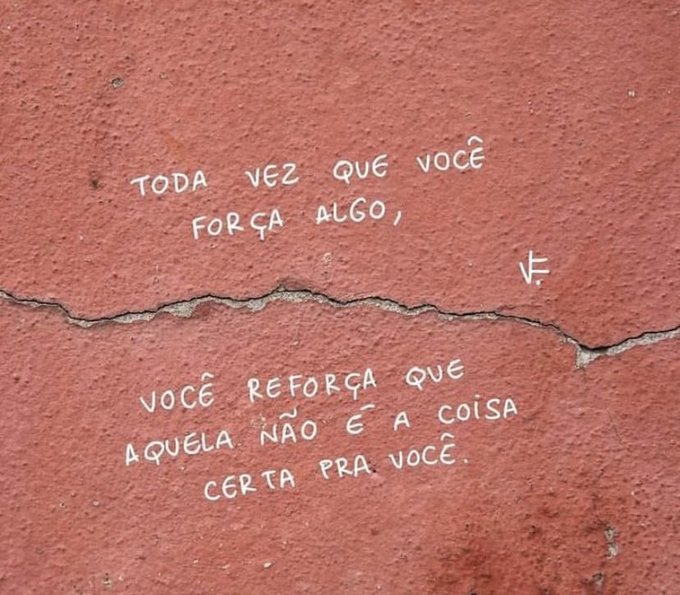 TODA VEZ QUE VOCÊ
FORÇA ALGO,
VF.
VOCÊ REFORÇA QUE
AQUELA NÃO É A COISA
CERTA PRA VOCÊ.